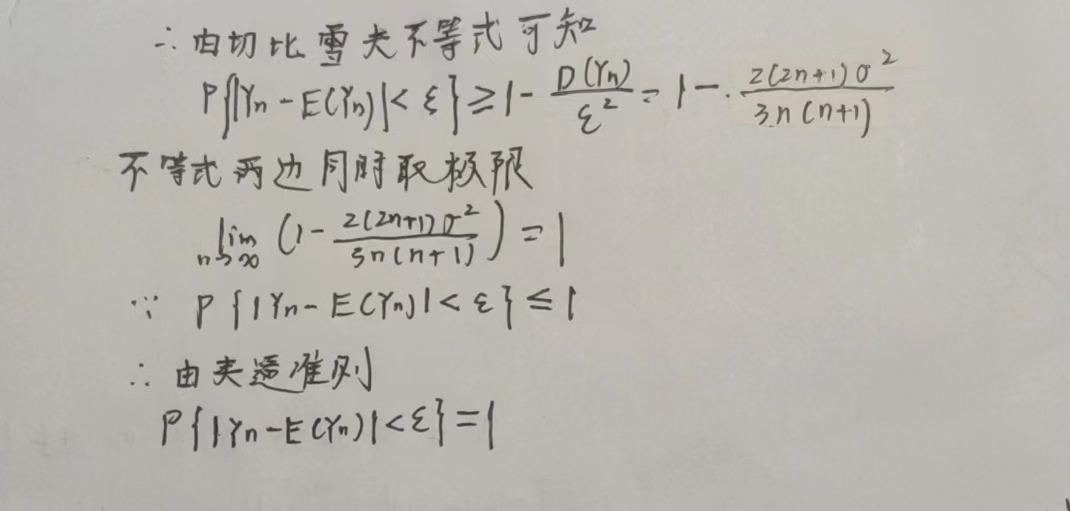 ∴ 由切比雪夫不等式可知
P{|Yn - E(Yn)| < ε} ≥ 1 - D(Yn)/ε² = 1 - 2(2n+1)σ²/3n(n+1)
不等式两边同时取极限
lim n→∞ (1 - 2(2n+1)σ²/3n(n+1)) = 1
∵ P{|Yn - E(Yn)| < ε} ≤ 1
∴ 由夹逼准则
P{|Yn - E(Yn)| < ε} = 1